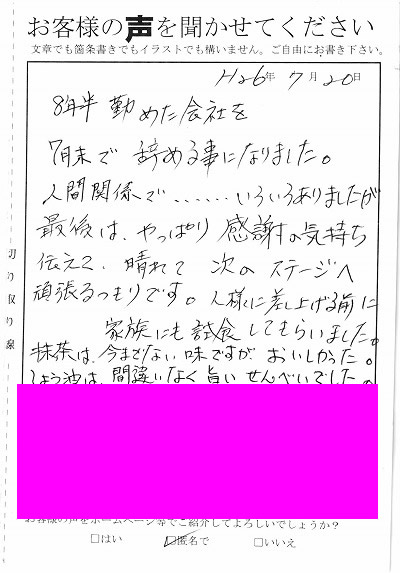 お客様の声を聞かせてください
文章でも箇条書きでもイラストでも構いません。ご自由にお書き下さい。
H26年7月20日
8年半 勤めた会社を
7月末で 辞める事になりました。
人間関係で……いろいろありましたが
最後は、やっぱり 感謝の気持ち
伝えて、晴れて 次の ステージへ
頑張るつもりです。人様に差し上げる前に
家族にも試食してもらいました。
抹茶は、今までない味ですが おいしかった。
しょう油は、間違いなく旨いせんべいでした。
お客様の声をホームページ等でご紹介してよろしいでしょうか？
□はい ☑匿名で □いいえ
切り取り線